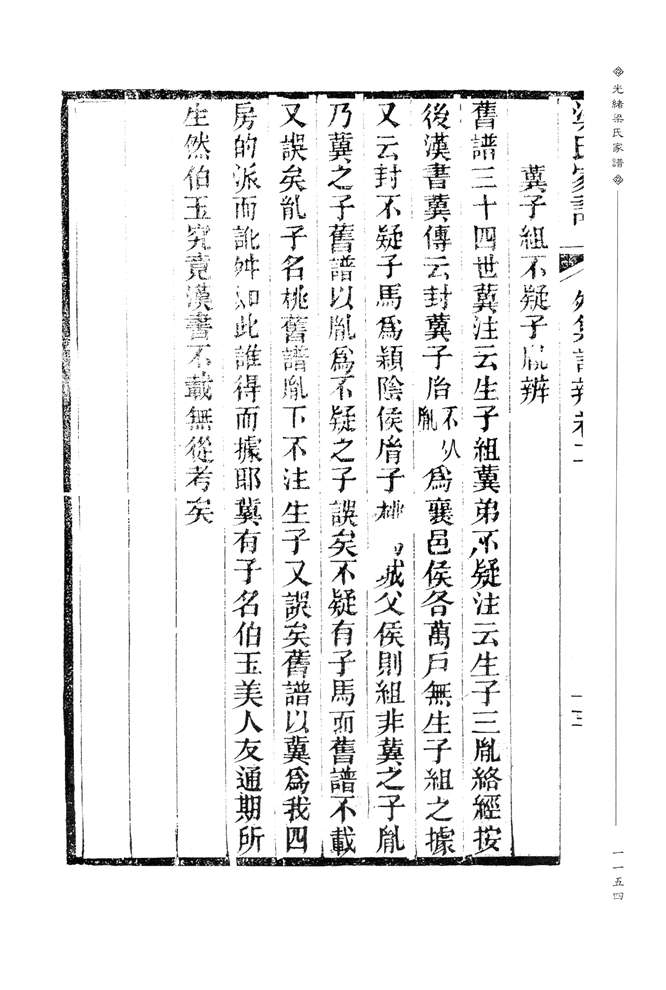 光緒梁氏家譜
梁氏家譜
外集訂辨卷二
冀子組不疑子胤辨
舊譜三十四世冀注云生子組冀弟不疑注云生子三胤絡經按
後漢書冀傳云封冀子胤不為襄邑侯各萬戶無生子組之據
又云封不疑子馬為頴陰侯胤子桃城父侯則組非冀之子胤
乃冀之子舊譜以胤為不疑之子誤矣不疑有子馬而舊譜不載
又誤矣胤子名桃舊譜胤下不注生子又誤矣舊譜以冀為我四
房的派而訛舛如此誰得而據耶冀有子名伯玉美人友通期所
生然伯玉究竟漢書不載無從考矣
一三
一一五四